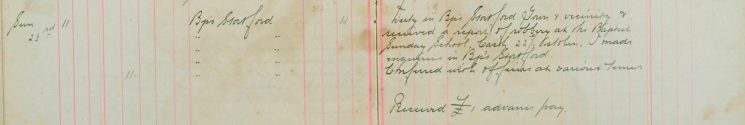 Sun 23rd 11 Bp's Stortford 11 Duty in Bp's Stortford Town & vicinity &
" " received a report of robbery at the Baptist
" " Sunday School, Cash 22/- stolen. I made
" " inquiries in Bp's Stortford.
11 " " Conferred with officers at various times
Received £ , advance pay.